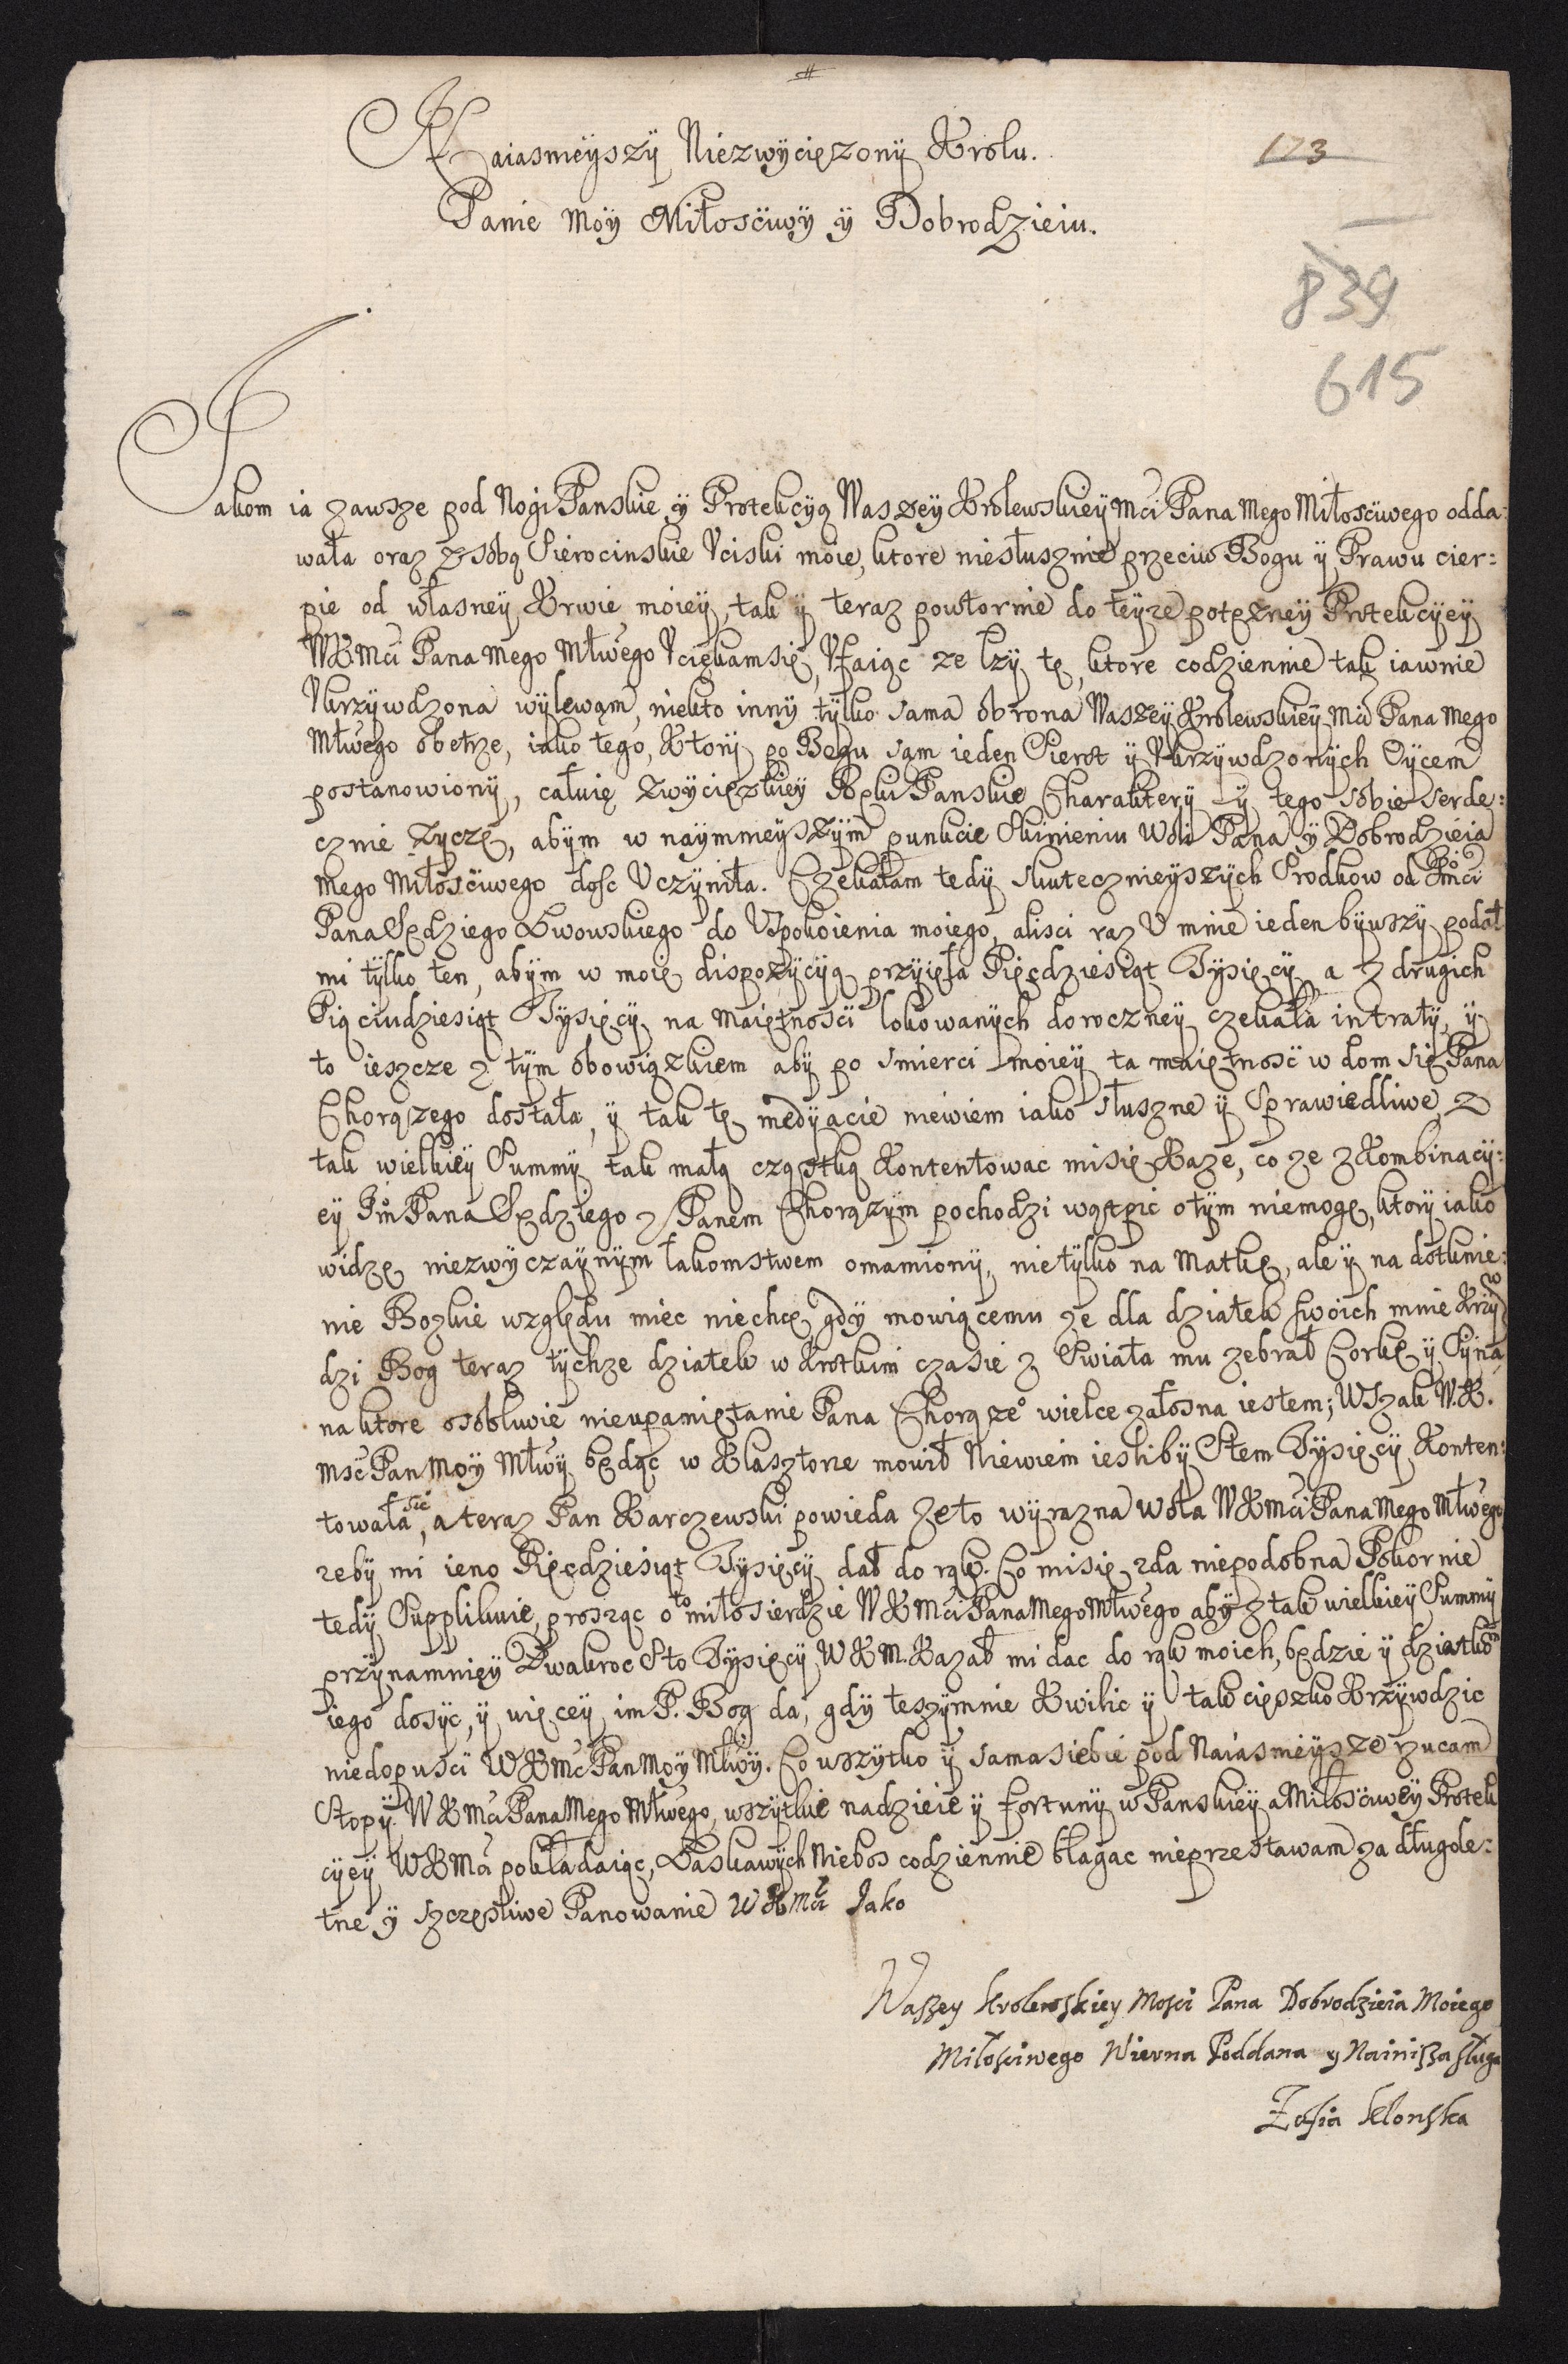 Naiasnieyszy Niezwyciezony Krolu.
173
Panie Moy Miłosciwy y Dobrodzieiu.
839
615
Jakom ia zawsze pod Nogi Panskie y Protekcyą Waszey Krolewskiey Mci Pana Mego Miłosciwego odda:
wała oraz z sobą Sierocinskie Uciski moie, ktore niesłusznie przeciw Bogu y Prawu cier:
pie od własney Krwie moiey, tak y teraz powtornie do teyze potęzney Protekcyey
WKMci Pana Mego Młwego Uciekam się, Ufaiąc ze łzy te, ktore codziennie tak iawnie
Ukrzywdzona wylewam, niekto inny tylko sama obrona Waszey Krolewskiey Mci Pana Mego
Młwego obetrze, iako tego, Ktory po Bogu sam ieden Sierot y Ukrzywdzonych Oycem
postanowiony, całuię Zwycięzkiey Ręku Panskie Charaktery y tego sobie serde:
cznie zyczę, abym w naymnieyszym punkcie Skinieniu Woli Pana y Dobrodzieia
Mego Miłosciwego dosc Uczyniła. Czekałam tedy skutecznieyszych Srodkow od Jmci
Pana Sędziego Lwowskiego do Uspokoienia moiego, alisci raz U mnie ieden bywszy podał
mi tylko ten, abym w moię dispozycyą przyięła Pięcdziesiąt Tysięcy, a z drugich
Piąciudziesiąt Tysięcy na Maiętnosci lokowanych doroczney czekała intraty, y
to ieszcze z tym obowiązkiem aby po smierci moiey ta maiętnosc w dom się Pana
Chorązego dostała, y tak te medyacie niewiem iako słuszne y Sprawiedliwe, z
tak wielkiey Summy tak małą cząstką Kontentowac mi się Kaze, co ze z Kombinacy:
ey Jm Pana Sędziego z Panem Chorązym pochodzi wątpic o tym niemogę, ktory iako
widzę niezwyczaynym łakomstwem omamiony, nie tylko na Matkę, ale y na dotknie:
nie Bozkie względu miec niechce gdy mowiącemu ze dla działek swoich mnie Krzyw
dzi Bog teraz tychze działek w Krotkim czasie z Swiata mu zebrał Corkę y Syna,
na ktore osobliwie nieupamiętanie Pana Chorąze° wielce załosna iestem; Wszak W.K.
Msc Pan Moy Młwy będąc w Klasztorze mowił Niewiem iesliby Stem Tysięcy Konten:
towała się, a teraz Pan Karczewski powieda Ze to wyrazna wola WKMci Pana Mego Młwego
zeby mi ieno Pięcdziesiąt Tysięcy dał do rąk. Co mi się zda niepodobna Pokornie
tedy Supplikuie, prosząc o to miłosierdzie WKMci Pana Mego Młwego aby z tak wielkiey Summy
przynamniey Dwakroc Sto Tysięcy WKM. Kazał mi dac do rąk moich, będzie y dziatkom
iego dosyc, y więcey im P. Bog da, gdy tesz y mnie Kwilic y tak cięszko Krzywdzic
niedopusci WKMc Pan Moy Młwy. Co wszytko y sama siebie pod Naiasnieysze rzucam
Stopy WKMci Pana Mego Młwego, wszytkie nadzieie y fortuny w Panskiey a Miłosciwey Protek
cyey WKMci pokładaiąc, Łaskawych Niebos codziennie błagac nieprzestawam za długole:
tne y szczęsliwe Panowanie WKMci Jako
Waszey Krolewskiey Mosci Pana Dobrodzieia Moiego
Miłosciwego Wierna Poddana y Nainisza sługa
Zofia Klonska